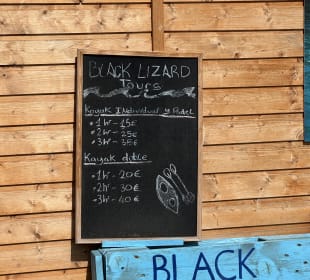 BLACK LIZARD
Tours
Kayak Individual y Padel
• 1 hr - 15€
• 2 hr - 25€
• 3 hr - 35€
Kayak doble
• 1hr - 20€
• 2hr - 30€
• 3hr - 40€
BLACK